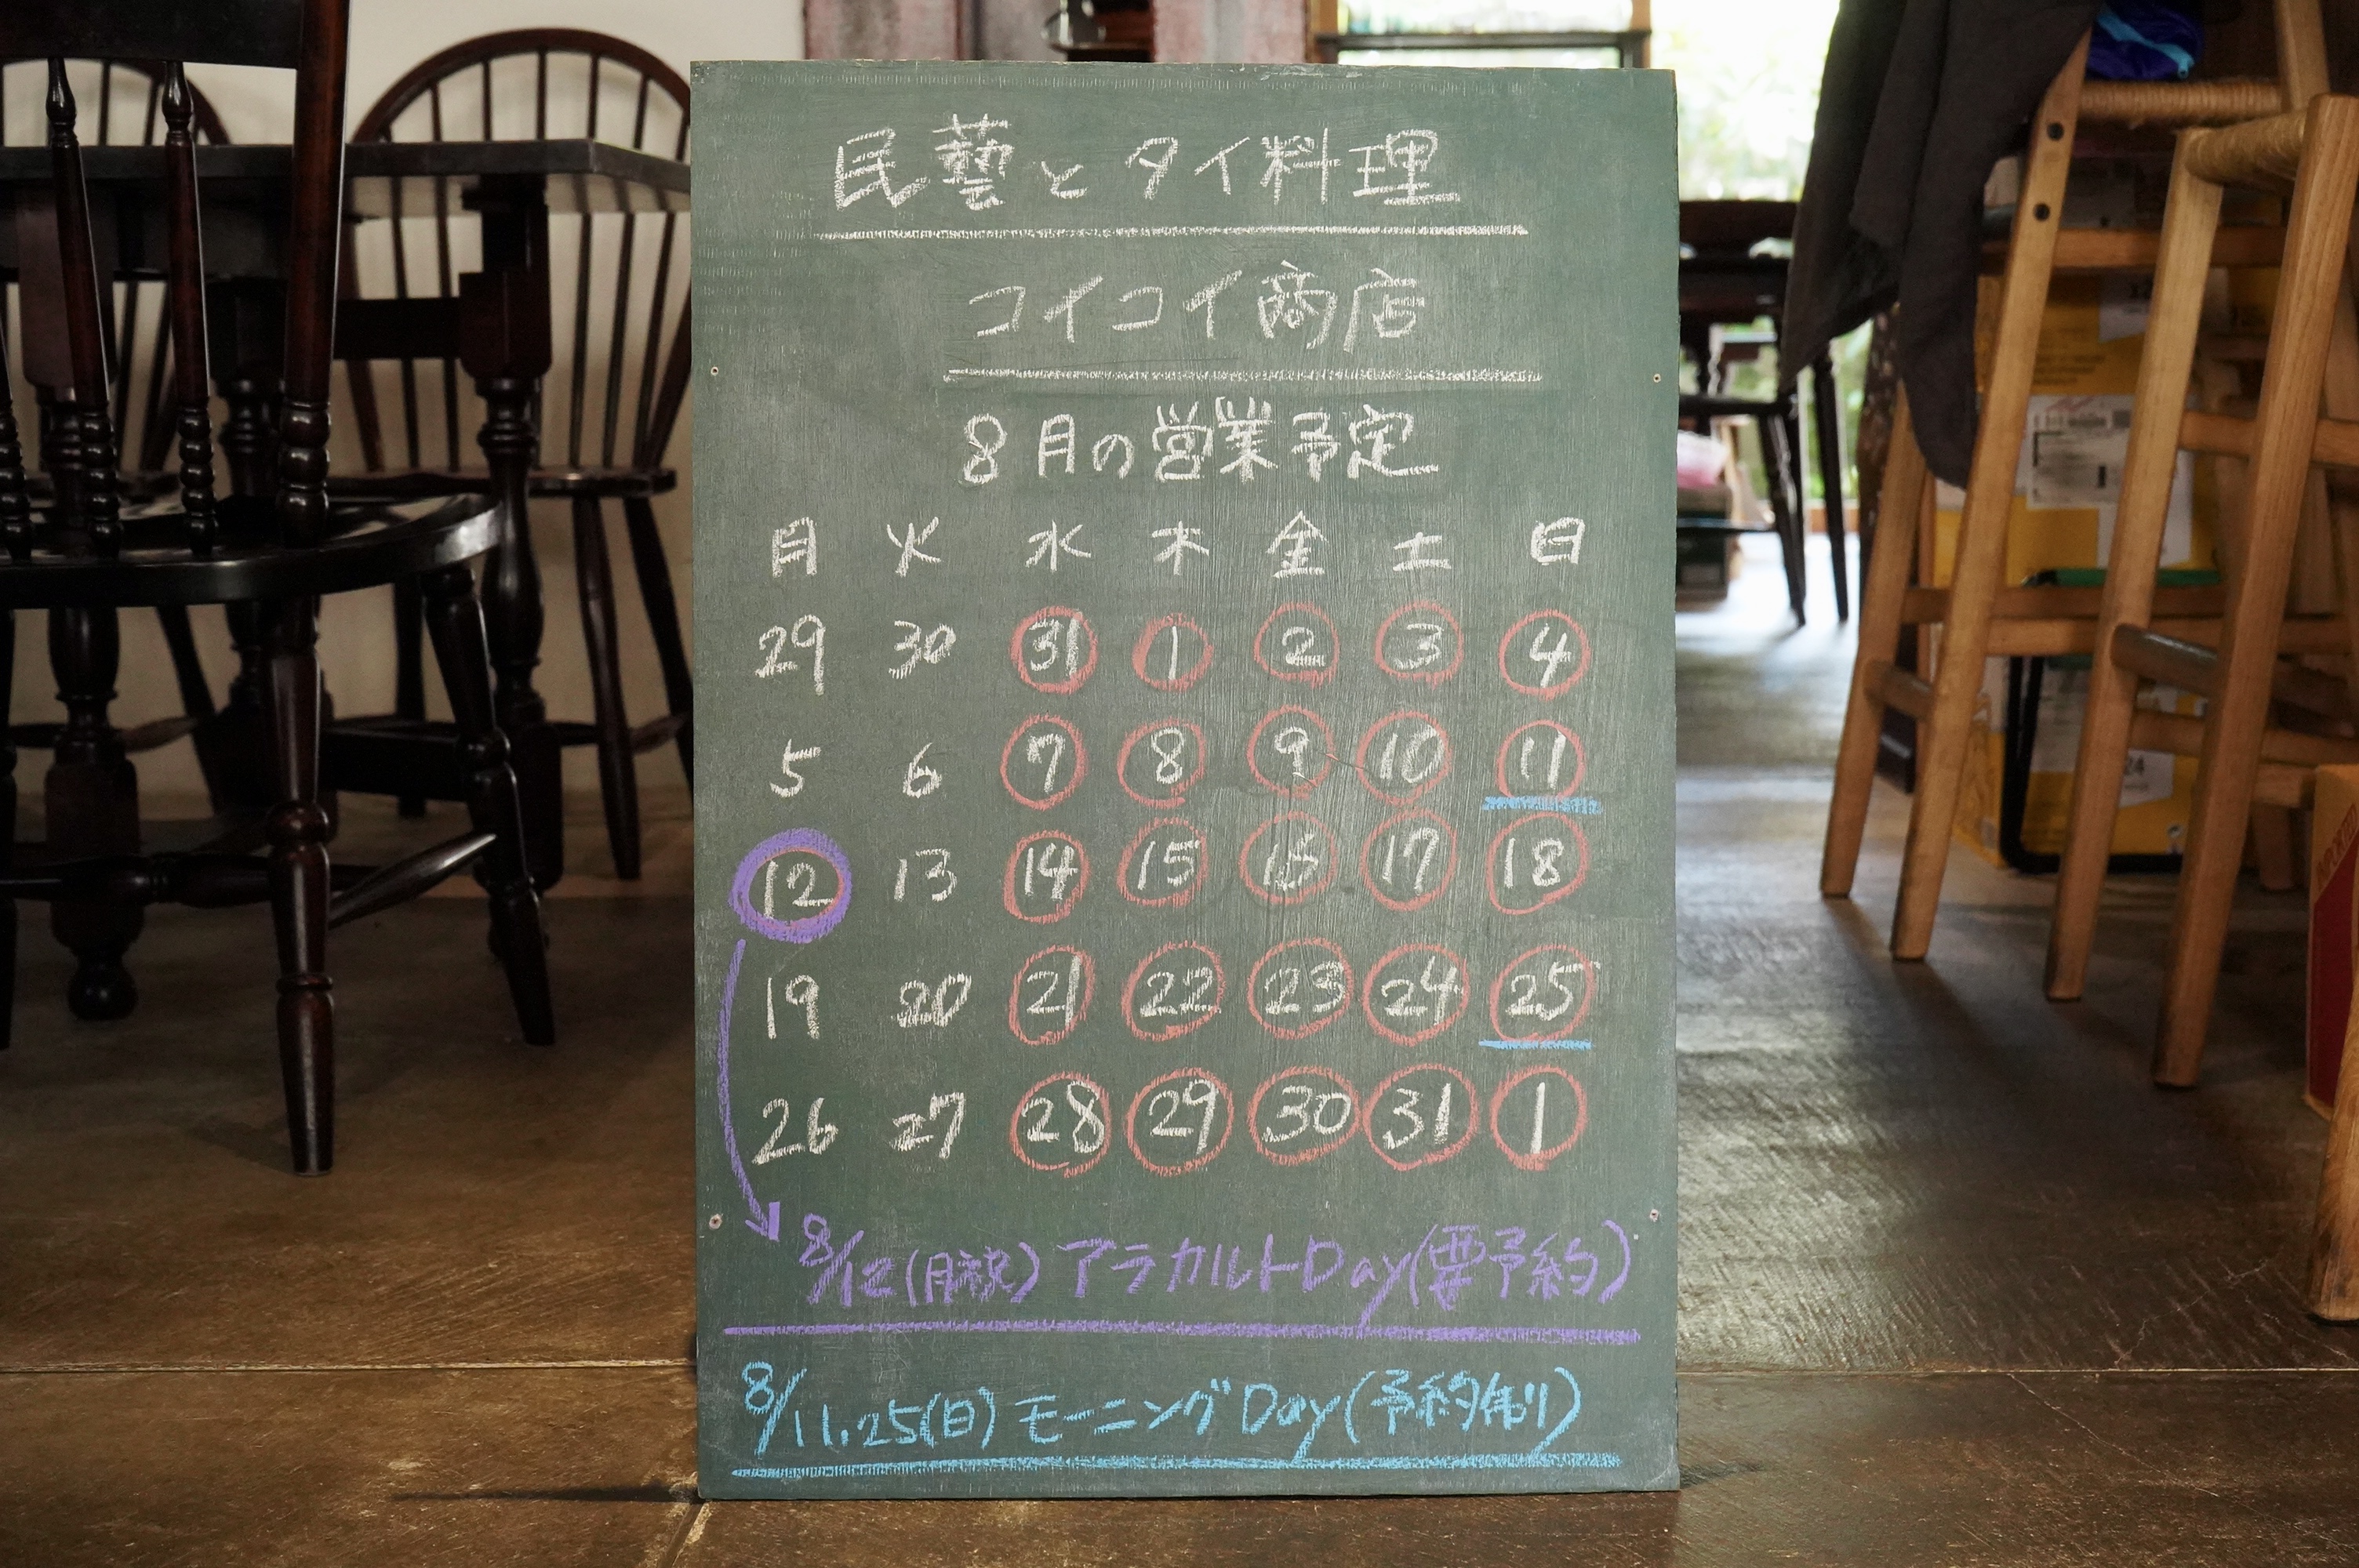 民藝とタイ料理
コイコイ商店
8月の営業予定
月 火 水 木 金 土 日
29 30 31 1 2 3 4
5 6 7 8 9 10 11
12 13 14 15 16 17 18
19 20 21 22 23 24 25
26 27 28 29 30 31 1
8/12(月祝)アラカルトDay(要予約)
8/11.25(日)モーニングDay(予約制)